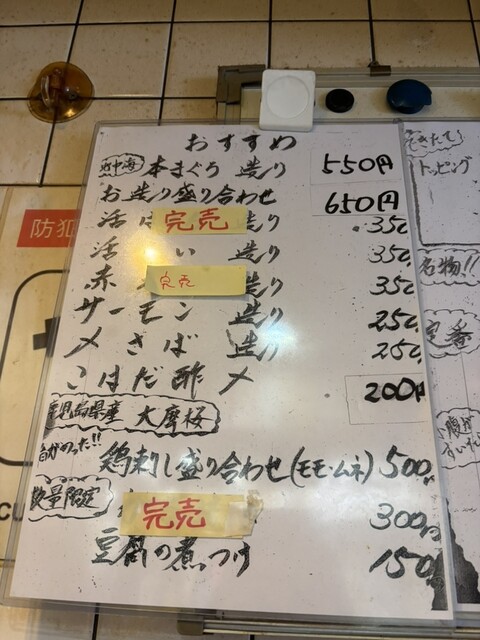 おすすめ
地中海 本まぐろ 造り 550円
お造り盛り合わせ 650円
活 完売 造り 350
活 い 造り 350
赤 完売 造り 350
サーモン 造り 250
〆さば 造り 250
こはだ酢〆 200円
鹿児島県産 大摩桜
旨かめった!!
鶏刺し盛り合わせ(モモ・ムネ) 500
数量限定
完売 300円
豆腐の煮つけ 150
できたて!
トッピング
名物!!
定番
防犯